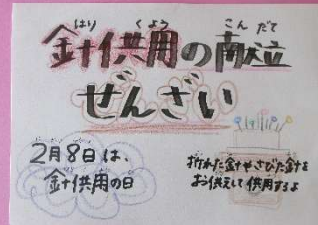 はり くよう こんだて
針供用の献立
ぜんざい
2月8日は、
針供用の日
折れた針やさびた針を
お供えして供用するよ